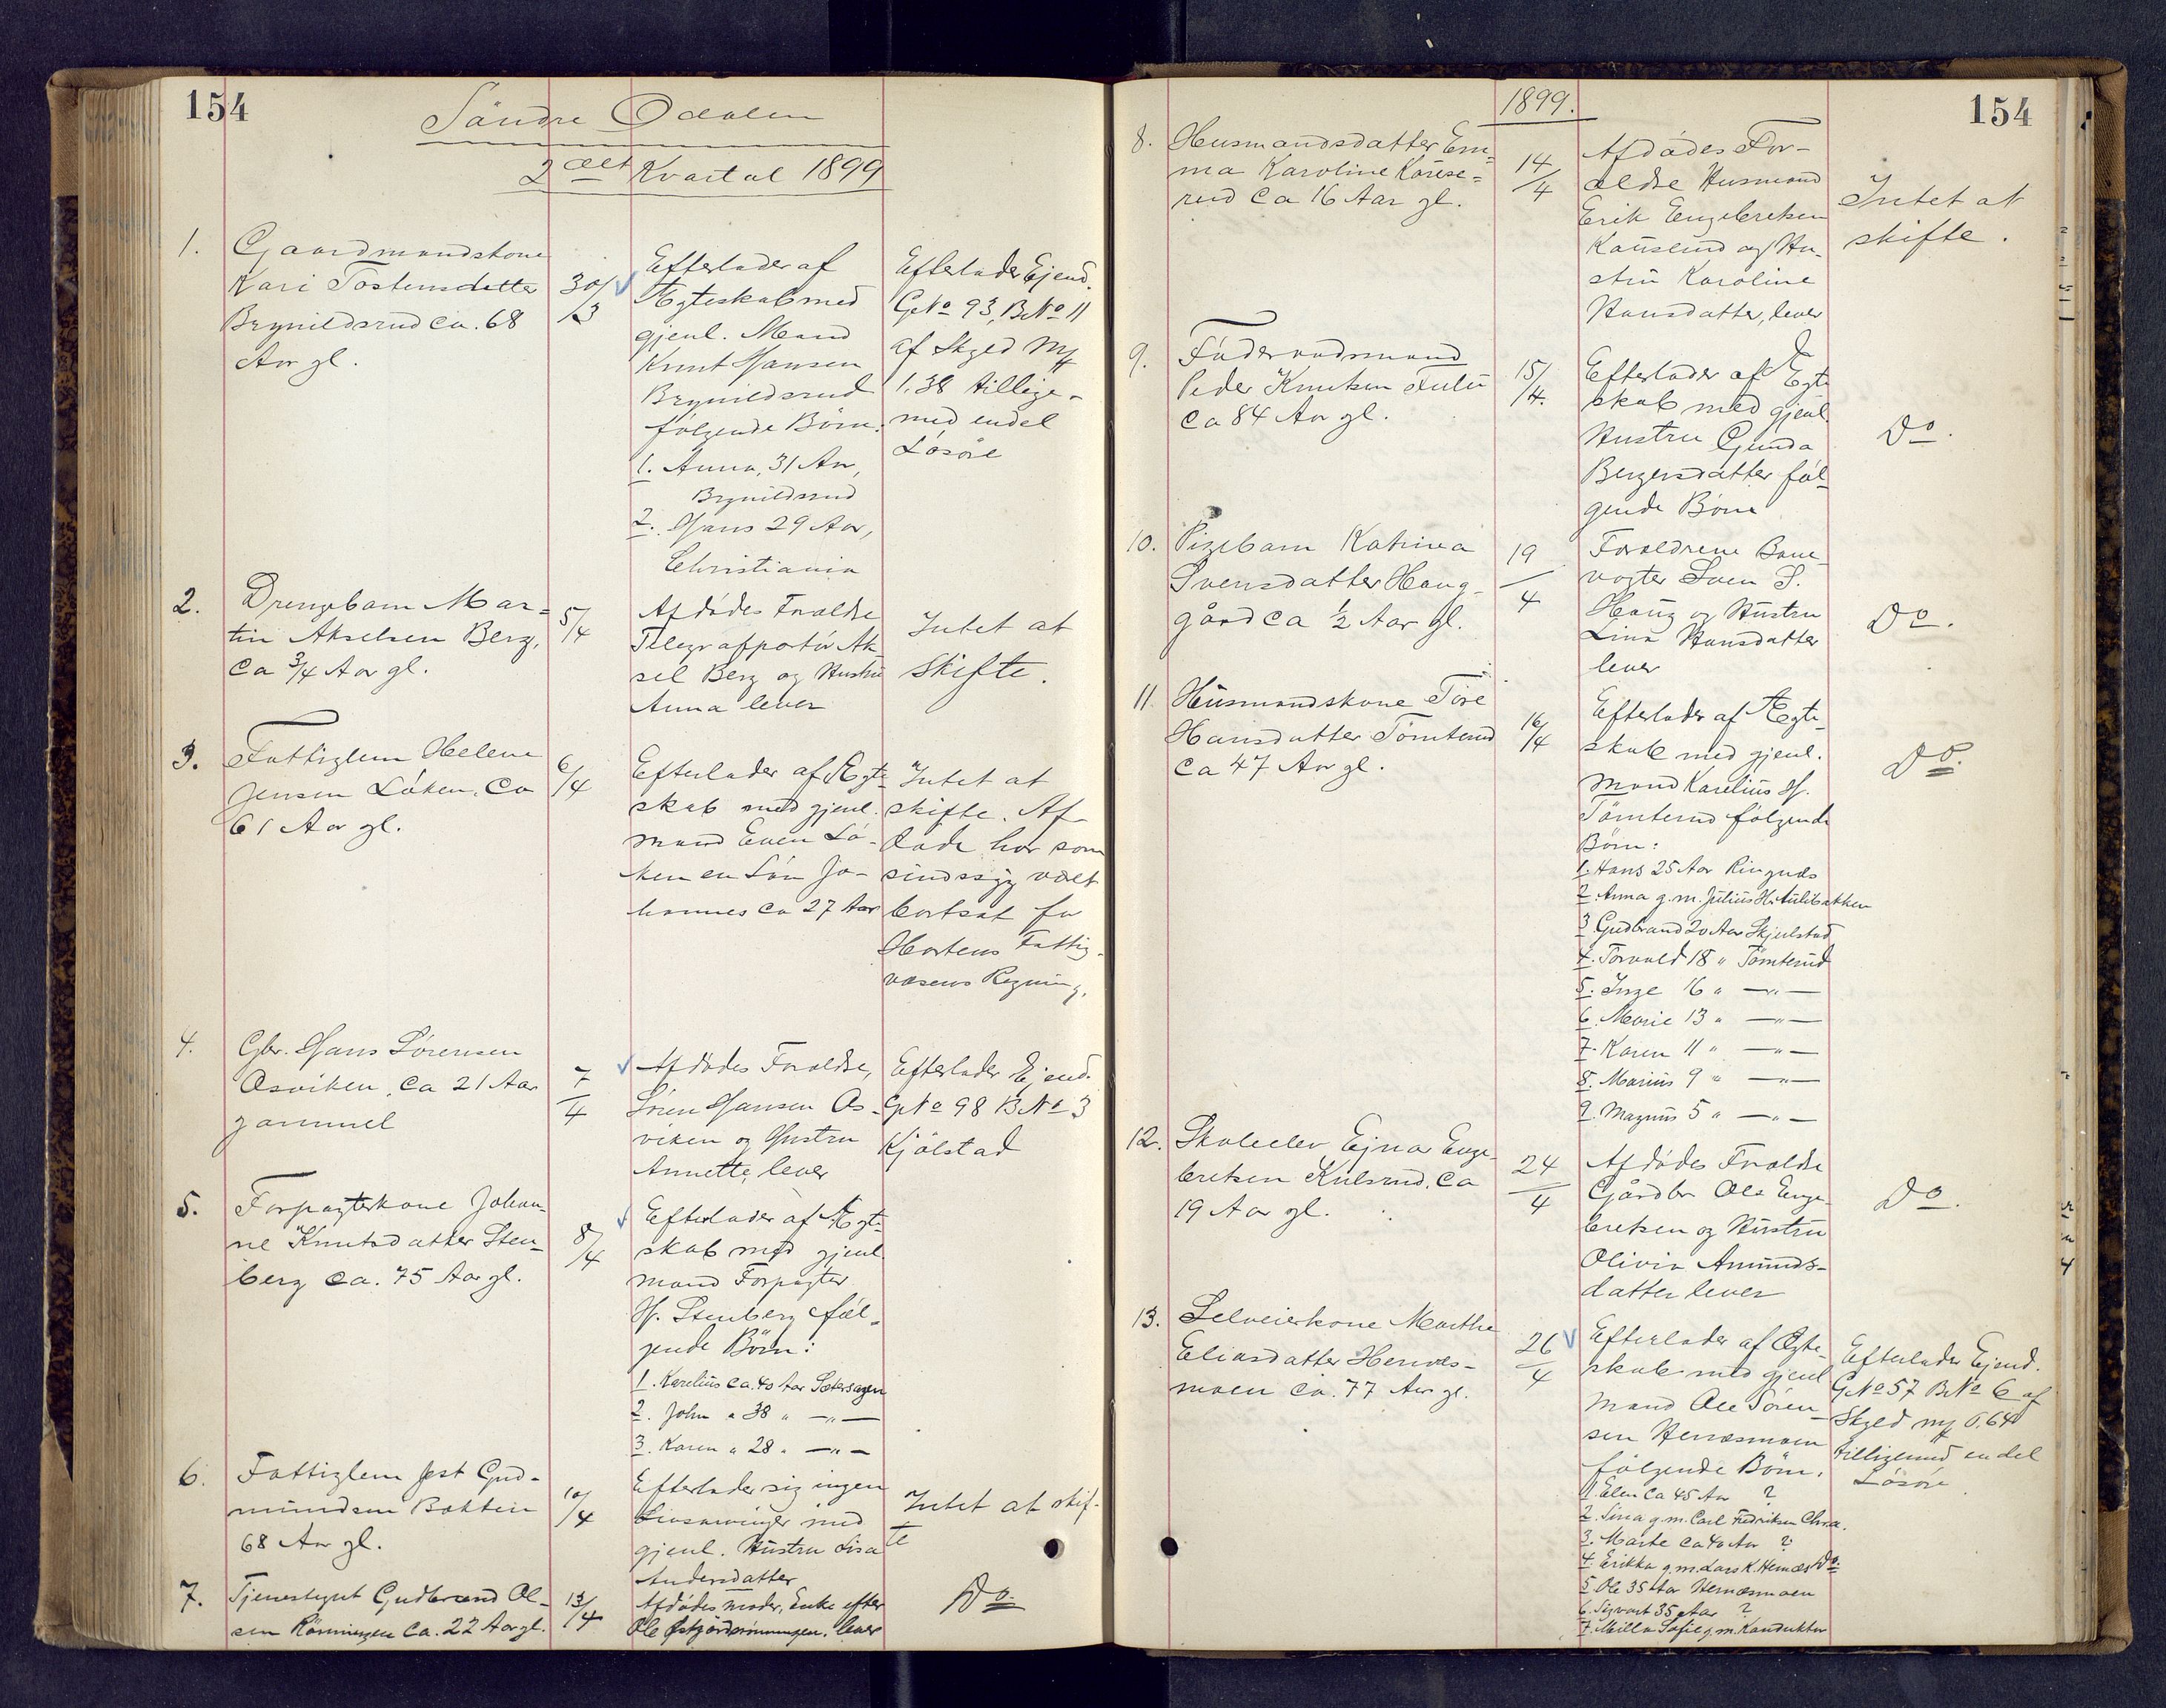 154
Söndre Odalen
2det Kvartal 1899
1.
Gaardmandskone
Kari Tostensdatter
Brynildsrud ca. 68
Aar gl.
30/3
Efterlader af
Ægteskab med
gjenl. Mand
Knut Hansen
Brynildsrud
følgende Børn:
1. Anna, 31 Aar,
Brynildsrud
2. Hans 29 Aar,
Christiania
Efterlader Ejend.
GNo 93, BNo 11
af Skyld Mk
1.38 tillige-
med endel
Løsøre
2.
Drengebarn Mar-
tin Akselsen Berg,
Ca 3/4 Aar gl.
5/4
Afdødes Forældre
Telegrafpotør Ak-
sel Berg og Hustru
Anna lever
Intet at
skifte.
3.
Fattiglem Helene
Jensen Løken, Ca
61 Aar gl.
6/4
Efterlader af Ægte-
skab med gjenl.
Mand Even Lø-
ken en Søn Jo-
hannes Ca 27 Aar
Intet at
skifte. Af-
døde har som
sindssyg vært
bortsat for
Hortens Fattig-
væsens Regning.
4.
Gbr. Hans Sørensen
Osviken, Ca 21 Aar
gammel
7/4
Afdødes Forældre,
Søren Hansen Os-
viken og Hustru
Annette, lever
Efterlader Ejend.
GNo 98 BNo 3
Kjölstad
5.
Forpagterkone Johan-
ne Knutsdatter Sten-
berg Ca. 75 Aar gl.
8/4
Efterlader af Ægte-
skab med gjenl
Mand Forpagter
H. Stenberg føl-
gende Børn:
1. Karelius Ca. 40 Aar Sætersagen
2. John " 38 " —"—
3. Karen " 28 " —"—
6.
Fattiglem Jost Gud-
mundsen Bakken
68 Aar gl.
10/4
Efterlader sig ingen
Livsarvinger med
gjenl. Hustru Lisa
Andersdatter
Intet at skif-
te
7.
Tjenestegut Gudbrand Ol-
sen Rönningen Ca. 22 Aar gl.
13/4
Afdødes moder, Enke efter
Ole, lever
Do.
1899.
154
8.
Husmandsdatter Em-
ma Karoline
rud Ca 16 Aar gl.
14/4
Afdødes For-
ældre Husmand
Erik Engebretsen
og Hu-
stru Karoline
Hansdatter, lever
Intet at
skifte.
9.
Föderaadsmand
Peder Knutsen Fulu
Ca 84 Aar gl.
15/4.
Efterlader af Ægte
skab med gjenl.
Hustru Gunda
Bergersdatter føl-
gende Børn
Do.
10.
Pigebarn Katrina
Svensdatter Haug-
gård Ca 1/2 Aar gl.
19/4
Forældrene Bane-
vogter Sven S.
Haug og Hustru
Lina Hansdatter
lever
Do.
11.
Husmandskone Tore
Hansdatter Tömterud
Ca 47 Aar gl.
16/4
Efterlader af Ægte-
skab med gjenl.
Mand Karelius H.
Tömterud følgende
Børn:
1. Hans 25 Aar Ringnes
2. Anna g.m. Julius H. Aulibakken
3 Gudbrand 20 Aar Skjelstad
4. Torvald 18 " Tömterud
5. Inge 16 " —"—
6. Marie 13 " —"—
7. Karen 11 " —"—
8. Marius 9 " —"—
9. Magnus 5 " —"—
Do.
12.
Skoleelev Ejnar Enge-
bretsen Kulsrud, Ca
19 Aar gl.
24/4
Afdødes Forældre
Gårdbr Ole Enge-
bretsen og Hustru
Olivia Amunds-
datter lever
Do.
13.
Selveierkone Marthe
Eliasdatter Hernæs-
moen Ca. 77 Aar gl.
26/4
Efterlader af Ægte-
skab med gjenl
Mand Ole Søren-
sen Hernæsmoen
følgende Børn.
1. Elen Ca 45 Aar ?
2. Sina g.m. Carl Fredriksen Chra.
3. Marte Ca 40 Aar ?
4. Erikka g.m. Lars K. Hernæs Do.
5. Ole 35 Aar Hernæsmoen
6. Sigvart 35 Aar ?
7. Milla Sofie g.m. Konduktør
Efterlader Ejend.
GNo 57 BNo 6 af
Skyld Mk 0.64
tilligemed en del
Løsøre